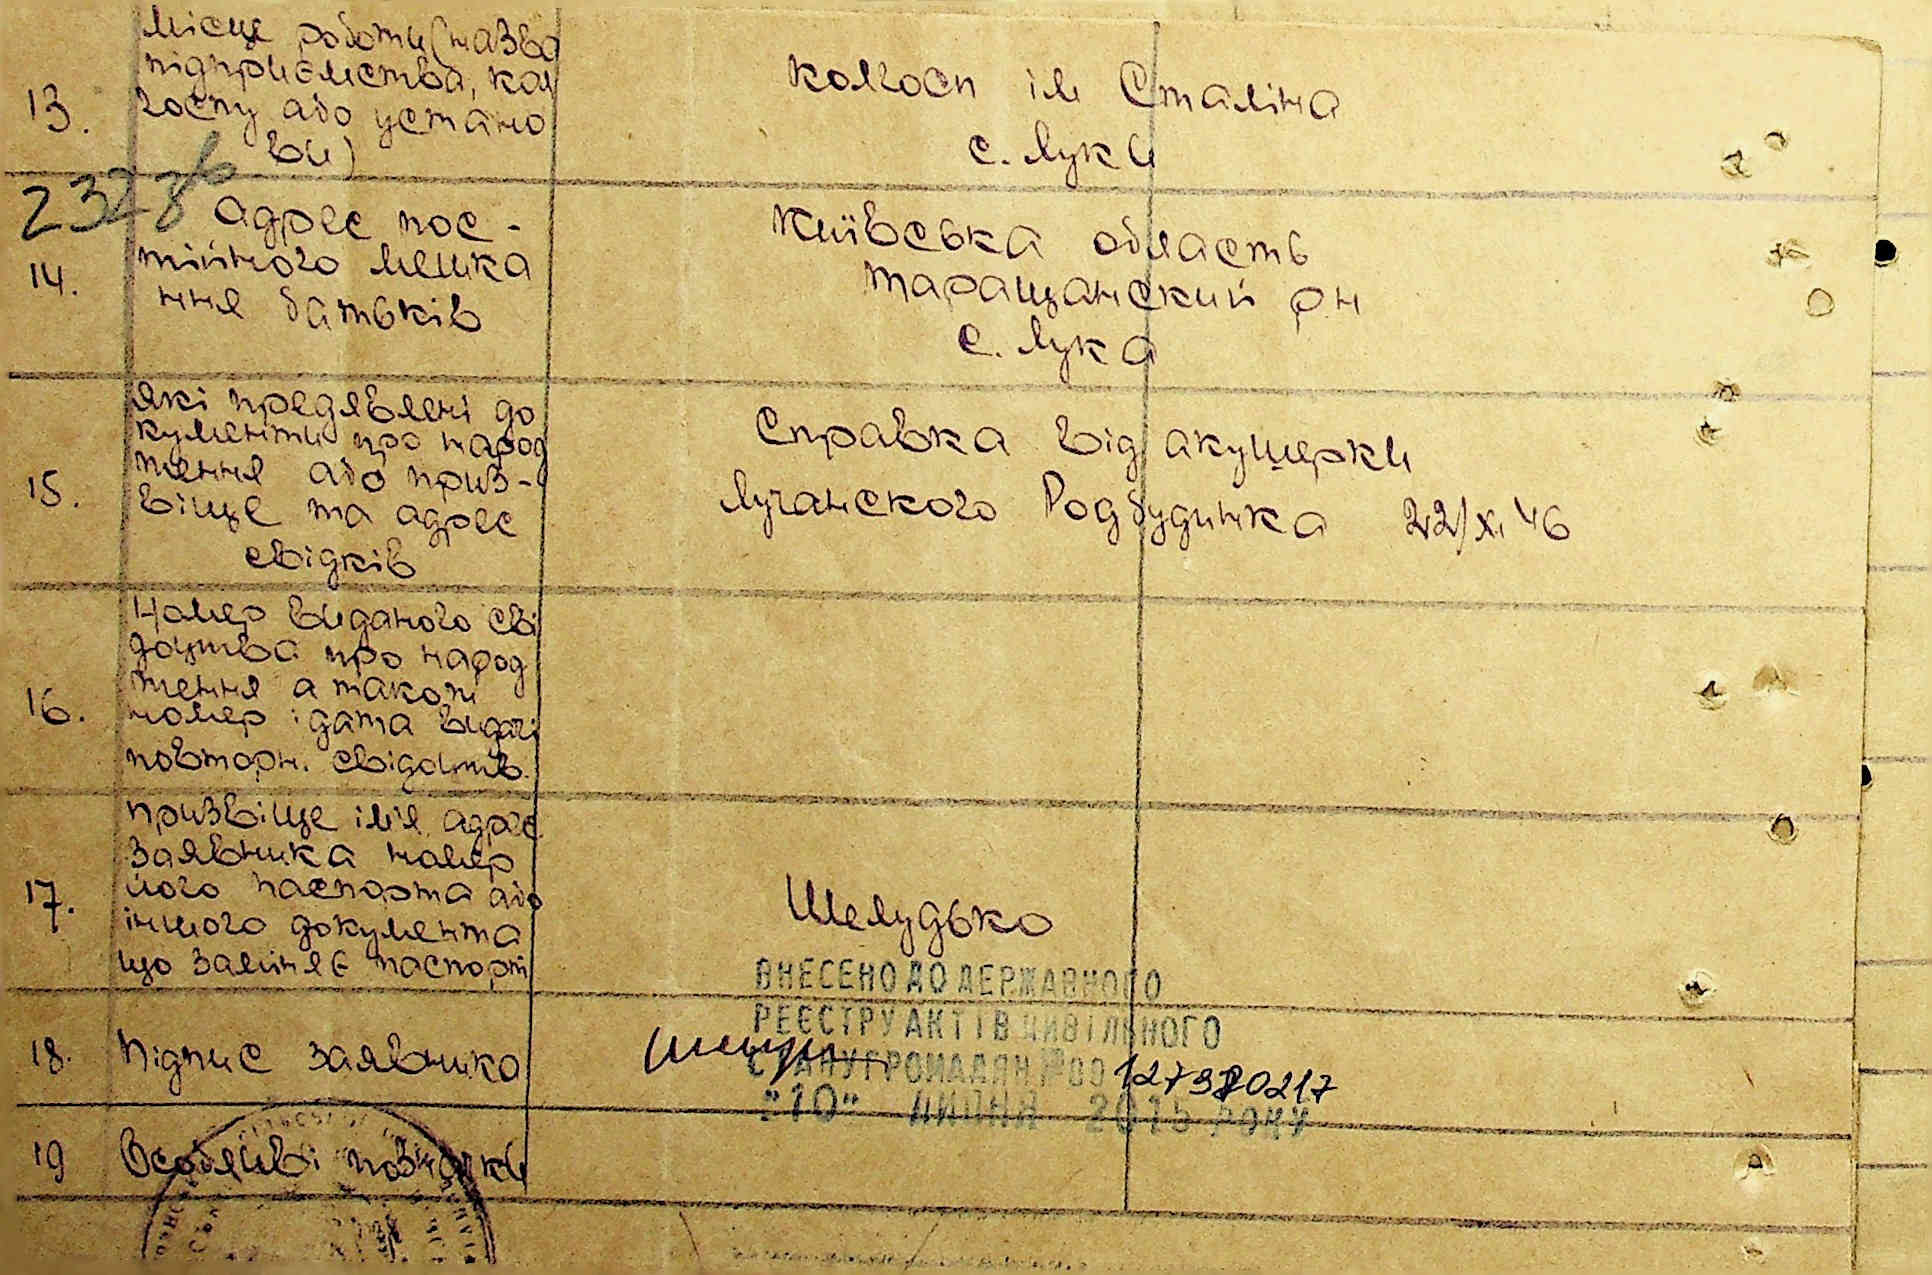 13.
місце роботи (назва
підприємства, кол
госпу або устано
ви)
колгосп ім Сталіна
с. Луки
2328
14.
адрес пос-
тійного мешка
ння батьків
Київська область
таращанский рн
с. Лука
15.
які предявлені до
кументи про народ
ження або приз-
віще та адрес
свідків
Справка від акушерки
Лучанского Родбудинка 22/XI 46
16.
Номер виданого сві
доцтва про народ
ження а також
номер і дата видачі
повторн. свідоцтв.
17.
призвіще імя, адрес
заявника номер
його паспорта або
іншого документа
що заміняє паспорт
Шелудько
ВНЕСЕНО ДО ДЕРЖАВНОГО
РЕЄСТРУ АКТІВ ЦИВІЛЬНОГО
СТАНУ ГРОМАДЯН №00 127980217
"10" ЛИПНЯ 2015 РОКУ
18.
Підпис заявника
19
Особливі позначки